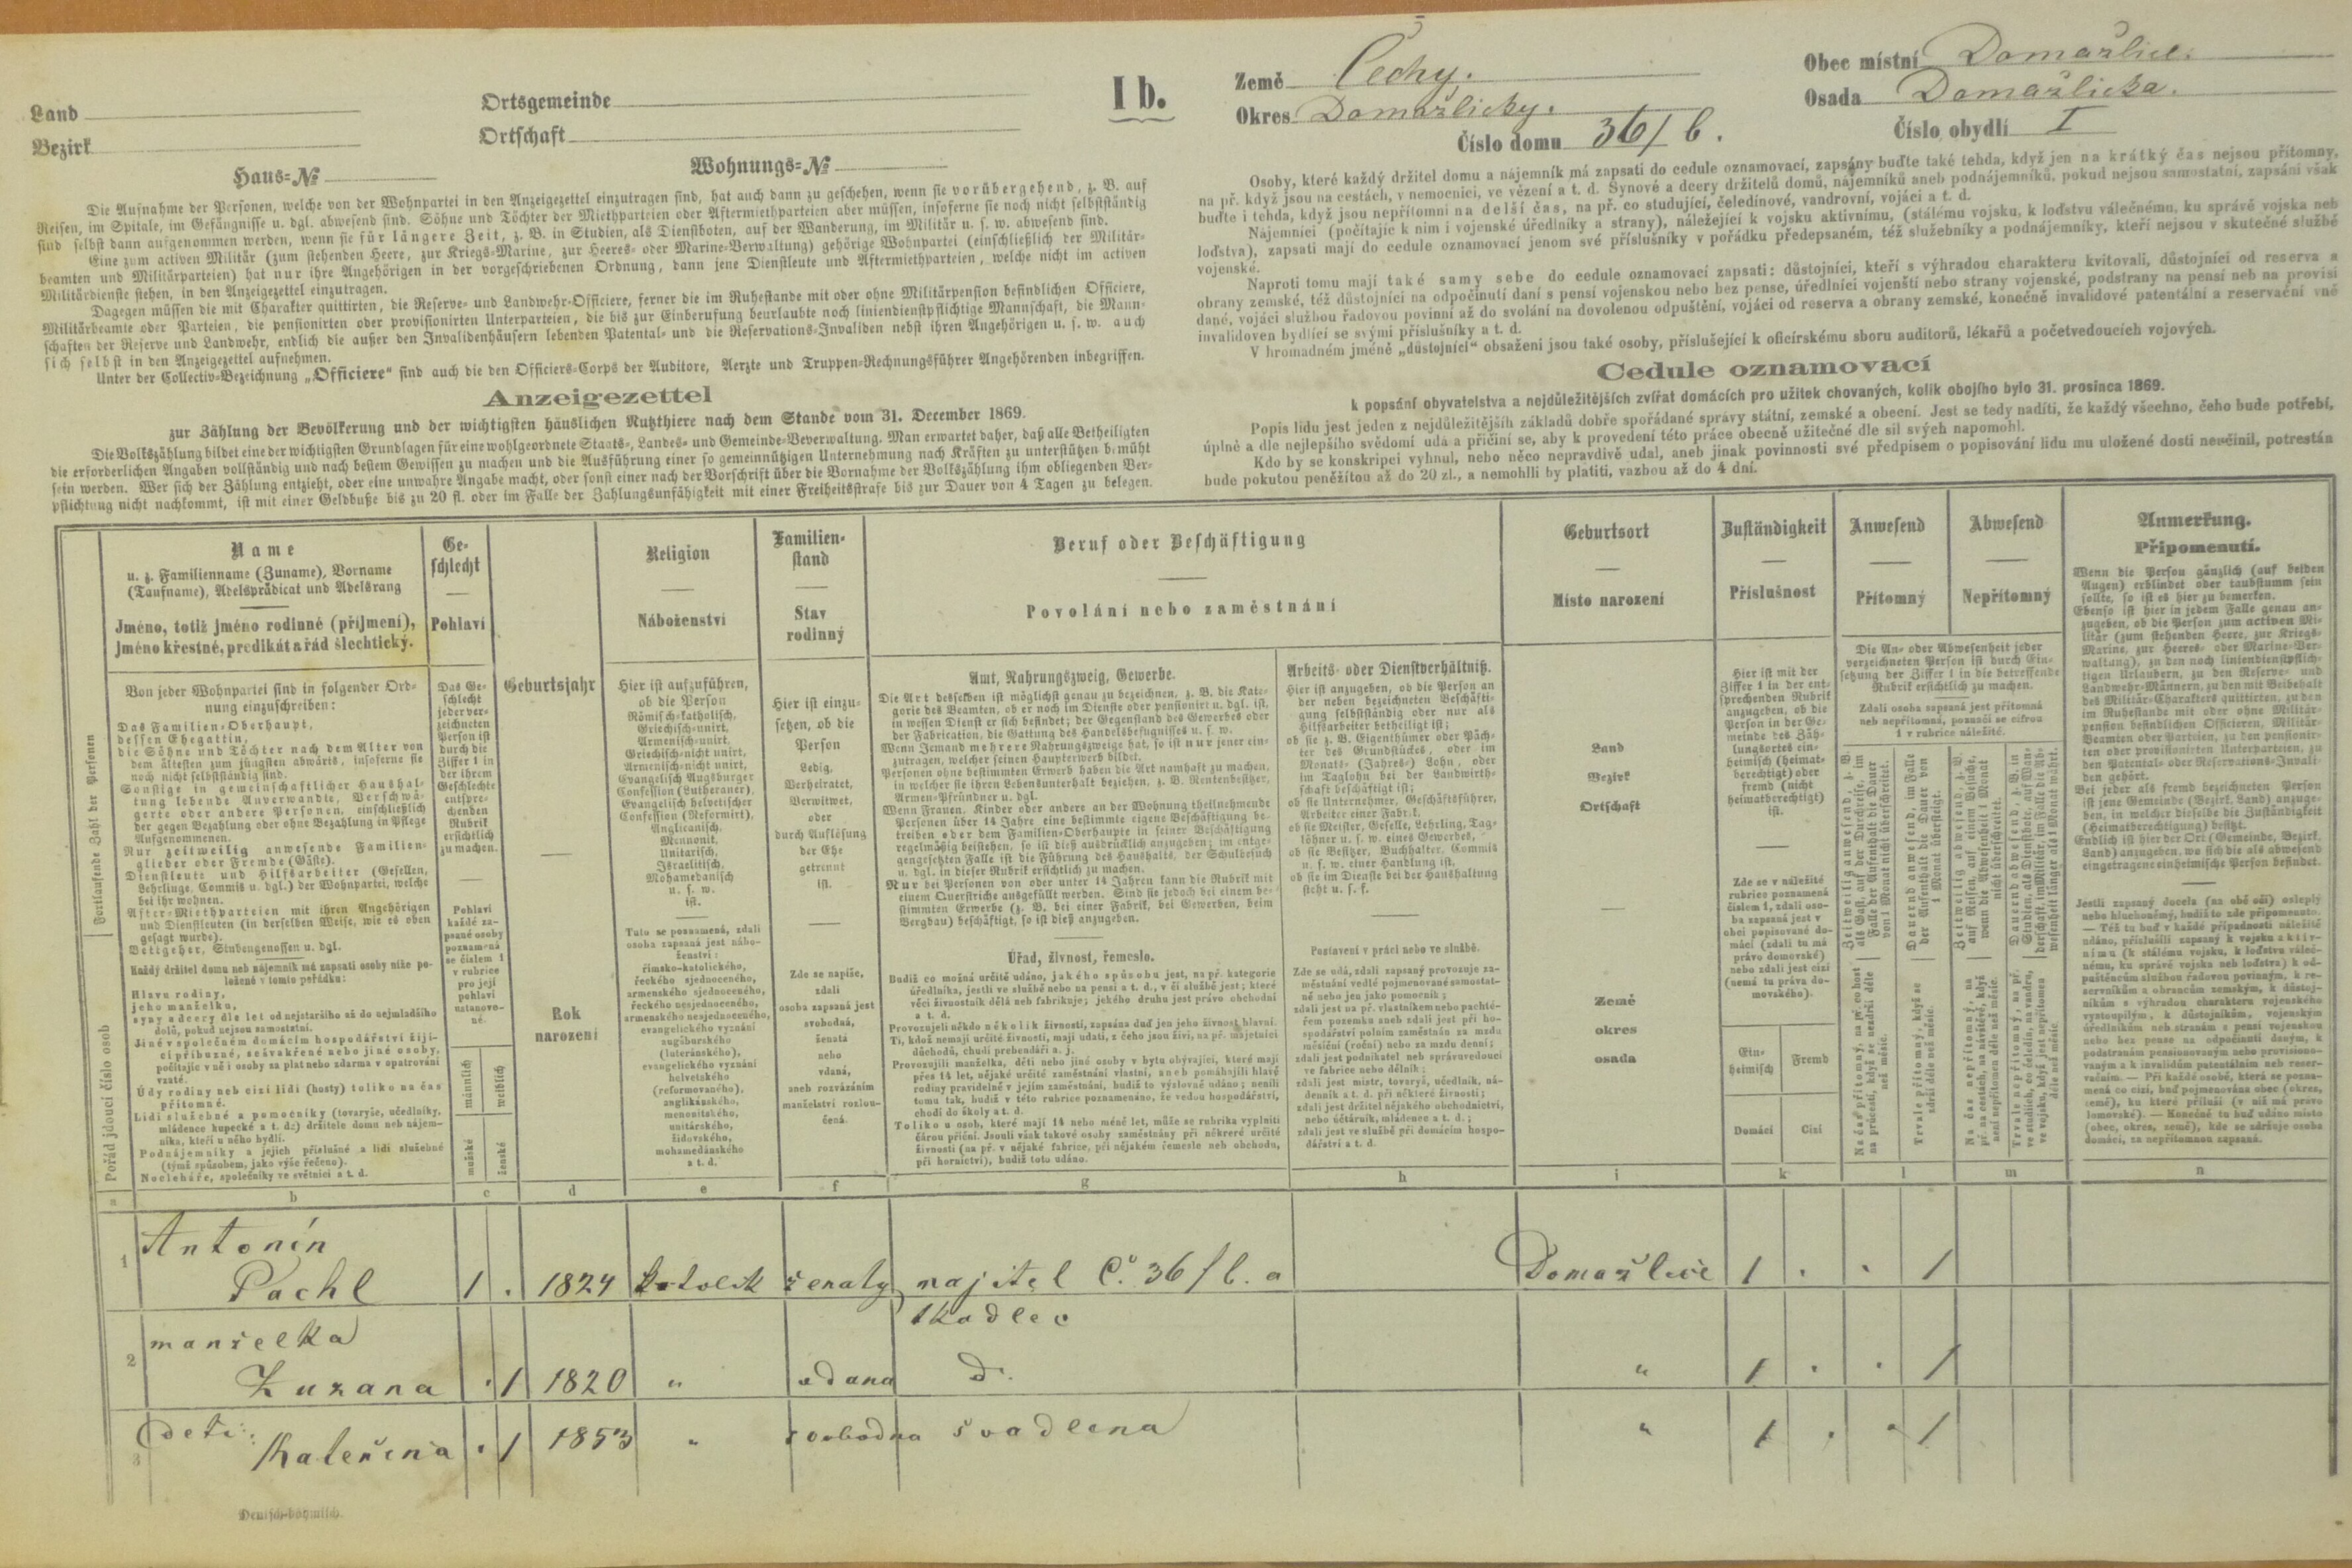 Land
Ortsgemeinde
Bezirk
Ortschaft
Haus-№
Wohnungs-№
I b.
Země Čechy.
Okres Domažlický.
Číslo domu 36/b.
Obec místní Domažlice.
Osada Domažlická.
Číslo obydlí I
Die Aufnahme der Personen, welche von der Wohnpartei in den Anzeigezettel einzutragen sind, hat auch dann zu geschehen, wenn sie vorübergehend, z. B. auf
Reisen, im Spitale, im Gefängnisse u. dgl. abwesend sind. Söhne und Töchter der Miethparteien oder Aftermiethparteien aber müssen, insoferne sie noch nicht selbstständig
sind selbst dann aufgenommen werden, wenn sie für längere Zeit, z. B. in Studien, als Dienstboten, auf der Wanderung, im Militär u. s. w. abwesend sind.
Eine zum activen Militär (zum stehenden Heere, zur Kriegs-Marine, zur Heeres- oder Marine-Verwaltung) gehörige Wohnpartei (einschließlich der Militär-
beamten und Militärparteien) hat nur ihre Angehörigen in der vorgeschriebenen Ordnung, dann jene Dienstleute und Aftermiethparteien, welche nicht im activen
Militärdienste stehen, in den Anzeigezettel einzutragen.
Dagegen müssen die mit Charakter quittirten, die Reserve- und Landwehr-Officiere, ferner die im Ruhestande mit oder ohne Militärpension befindlichen Officiere,
Militärbeamte oder Parteien, die pensionirten oder provisionirten Unterparteien, die bis zur Einberufung beurlaubte noch liniendienstpflichtige Mannschaft, die Mann-
schaften der Reserve und Landwehr, endlich die außer den Invalidenhäusern lebenden Patental- und die Reservations-Invaliden nebst ihren Angehörigen u. s. w. auch
sich selbst in den Anzeigezettel aufnehmen.
Unter der Collectiv-Bezeichnung „Officiere“ sind auch die den Officiers-Corps der Auditore, Aerzte und Truppen-Rechnungsführer Angehörenden inbegriffen.
Anzeigezettel
zur Zählung der Bevölkerung und der wichtigsten häuslichen Nutzthiere nach dem Stande vom 31. December 1869.
Die Volkszählung bildet eine der wichtigsten Grundlagen für eine wohlgeordnete Staats-, Landes- und Gemeinde-Beverwaltung. Man erwartet daher, daß alle Betheiligten
die erforderlichen Angaben vollständig und nach bestem Gewissen zu machen und die Ausführung einer so gemeinnützigen Unternehmung nach Kräften zu unterstützen bemüht
sein werden. Wer sich der Zählung entzieht, oder eine unwahre Angabe macht, oder sonst einer nach der Vorschrift über die Vornahme der Volkszählung ihm obliegenden Ver-
pflichtung nicht nachkommt, ist mit einer Geldbuße bis zu 20 fl. oder im Falle der Zahlungsunfähigkeit mit einer Freiheitsstrafe bis zur Dauer von 4 Tagen zu belegen.
Osoby, které každý držitel domu a nájemník má zapsati do cedule oznamovací, zapsány buďte také tehda, když jen na krátký čas nejsou přítomny,
na př. když jsou na cestách, v nemocnici, ve vězení a t. d. Synové a dcery držitelů domů, nájemníků aneb podnájemníků, pokud nejsou samostatni, zapsáni však
buďte i tehda, když jsou nepřítomni na delší čas, na př. co studující, čeledínové, vandrovní, vojáci a t. d.
Nájemníci (počítajíc k nim i vojenské úředníky a strany), náležející k vojsku aktivnímu, (stálému vojsku, k loďstvu válečnému, ku správě vojska neb
loďstva), zapsati mají do cedule oznamovací jenom své příslušníky v pořádku předepsaném, též služebníky a podnájemníky, kteří nejsou v skutečné službě
vojenské.
Naproti tomu mají také samy sebe do cedule oznamovací zapsati: důstojníci, kteří s výhradou charakteru kvitovali, důstojníci od reserva a
obrany zemské, též důstojníci na odpočinutí daní s pensí vojenskou nebo bez pense, úředlníci vojenští nebo strany vojenské, podstrany na pensi neb na provisi
dané, vojáci službou řadovou povinní až do svolání na dovolenou odpuštění, vojáci od reserva a obrany zemské, konečně invalidové patentální a reservační vně
invalidoven bydlící se svými příslušníky a t. d.
V hromadném jméně „důstojníci“ obsaženi jsou také osoby, příslušející k oficírskému sboru auditorů, lékařů a početvedoucích vojových.
Cedule oznamovací
k popsání obyvatelstva a nejdůležitějších zvířat domácích pro užitek chovaných, kolik obojího bylo 31. prosince 1869.
Popis lidu jest jeden z nejdůležitějšíh základů dobře spořádané správy státní, zemské a obecní. Jest se tedy nadíti, že každý všechno, čeho bude potřebí,
úplně a dle nejlepšího svědomí udá a přičiní se, aby k provedení této práce obecně užitečné dle sil svých napomohl.
Kdo by se konskripcí vyhnul, nebo něco nepravdivě udal, aneb jinak povinnosti své předpisem o popisování lidu mu uložené dosti neučinil, potrestán
bude pokutou peněžitou až do 20 zl., a nemohlli by platiti, vazbou až do 4 dní.
Fortlaufende Zahl der Personen
Pořád jdoucí číslo osob
Name
u. z. Familienname (Zuname), Vorname
(Taufname), Adelsprädicat und Adelsrang
Jméno, totiž jméno rodinné (příjmení),
jméno křestné, predikát a řád šlechtický.
Von jeder Wohnpartei sind in folgender Ord-
nung einzuschreiben:
Das Familien-Oberhaupt,
dessen Ehegattin,
die Söhne und Töchter nach dem Alter von
dem ältesten zum jüngsten abwärts, insoferne sie
noch nicht selbstständig sind.
Sonstige in gemeinschaftlicher Haushal-
tung lebende Anverwandte, Verschwä-
gerte oder andere Personen, einschließlich
der gegen Bezahlung oder ohne Bezahlung in Pflege
Aufgenommenen.
Nur zeitweilig anwesende Familien-
glieder oder Fremde (Gäste).
Dienstleute und Hilfsarbeiter (Gesellen,
Lehrlinge, Commis u. dgl.) der Wohnpartei, welche
bei ihr wohnen.
After-Miethparteien mit ihren Angehörigen
und Dienstleuten (in derselben Weise, wie es oben
gesagt wurde).
Bettgeher, Stubengenossen u. dgl.
Každý držitel domu neb nájemník má zapsati osoby níže po-
ložené v tomto pořádku:
Hlavu rodiny,
jeho manželku,
syny a dcery dle let od nejstaršího až do nejmladšího
dolů, pokud nejsou samostatni.
Jiné v společném domácím hospodářství žijí-
cí příbuzné, sešvakřené nebo jiné osoby,
počítajíc v ně i osoby za plat nebo zdarma v opatrování
vzaté.
Údy rodiny neb cizí lidi (hosty) toliko na čas
přítomné.
Lidi služebné a pomocníky (tovaryše, učedlníky,
mládence kupecké a t. d.) držitele domu neb nájem-
níka, kteří u něho bydlí.
Podnájemníky a jejich příslušné a lidi služebné
(týmž spůsobem, jako výše řečeno).
Nocleháře, společníky ve světnici a t. d.
Ge-
schlecht
Pohlaví
Das Ge-
schlecht
jeder ver-
zeichneten
Person ist
durch die
Ziffer 1 in
der ihrem
Geschlechte
entspre-
chenden
Rubrik
ersichtlich
zu machen.
Pohlaví
každé za-
psané osoby
poznamená
se číslem 1
v rubrice
pro její
pohlaví
ustanove-
né.
männlich
weiblich
mužské
ženské
Geburtsjahr
Rok
narození
Religion
Náboženství
Hier ist aufzuführen,
ob die Person
Römisch-katholisch,
Griechisch-unirt,
Armenisch-unirt,
Griechisch-nicht unirt,
Armenisch-nicht unirt,
Evangelisch Augsburger
Confession (Lutheraner),
Evangelisch helvetischer
Confession (Reformirt),
Anglicanisch,
Mennonit,
Unitarisch,
Israelitisch,
Mohamedanisch
u. s. w.
ist.
Tuto se poznamená, zdali
osoba zapsaná jest nábo-
ženství:
římsko-katolického,
řeckého sjednoceného,
armenského sjednoceného,
řeckého nesjednoceného,
armenského nesjednoceného,
evangelického vyznání
augšburského
(luteránského),
evangelického vyznání
helvetského
(reformovaného),
anglikánského,
menonitského,
unitárského,
židovského,
mohamedánského
a t. d.
Familien-
stand
Stav
rodinný
Hier ist einzu-
setzen, ob die
Person
Ledig,
Verheiratet,
Verwitwet,
oder
durch Auflösung
der Ehe
getrennt
ist.
Zde se napíše,
zdali
osoba zapsaná jest
svobodná,
ženatá
nebo
vdaná,
aneb rozvázáním
manželství rozlou-
čená.
Beruf oder Beschäftigung
Povolání nebo zaměstnání
Amt, Nahrungszweig, Gewerbe.
Die Art desselben ist möglichst genau zu bezeichnen, z. B. die Kate-
gorie des Beamten, ob er noch im Dienste oder pensionirt u. dgl. ist,
in wessen Dienst er sich befindet; der Gegenstand des Gewerbes oder
der Fabrication, die Gattung des Handelsbefugnisses u. s. w.
Wenn Jemand mehrere Nahrungszweige hat, so ist nur jener ein-
zutragen, welcher seinen Haupterwerb bildet.
Personen ohne bestimmten Erwerb haben die Art namhaft zu machen,
in welcher sie ihren Lebensunterhalt beziehen, z. B. Rentenbesitzer,
Armen-Pfründner u. dgl.
Wenn Frauen, Kinder oder andere an der Wohnung theilnehmende
Personen über 14 Jahre eine bestimmte eigene Beschäftigung be-
treiben oder dem Familien-Oberhaupte in seiner Beschäftigung
regelmäßig beistehen, so ist dieß ausdrücklich anzugeben; im entge-
gengesetzten Falle ist die Führung des Haushalts, der Schulbesuch
u. dgl. in dieser Rubrik ersichtlich zu machen.
Nur bei Personen von oder unter 14 Jahren kann die Rubrik mit
einem Querstriche ausgefüllt werden. Sind sie jedoch bei einem be-
stimmten Erwerbe (z. B. bei einer Fabrik, bei Gewerben, beim
Bergbau) beschäftigt, so ist dieß anzugeben.
Úřad, živnost, řemeslo.
Budiž co možná určitě udáno, jakého spůsobu jest, na př. kategorie
úředlníka, jestli ve službě nebo na pensi a t. d., v čí službě jest; které
věci živnostník dělá neb fabrikuje; jakého druhu jest právo obchodní
a t. d.
Provozujeli někdo několik živností, zapsána buď jen jeho živnost hlavní.
Ti, kdož nemají určité živnosti, mají udati, z čeho jsou živi, na př. majetníci
důchodů, chudí prebendáři a. j.
Provozujíli manželka, děti nebo jiné osoby v bytu obývající, které mají
přes 14 let, nějaké určité zaměstnání vlastní, aneb pomáhajíli hlavě
rodiny pravidelně v jejím zaměstnání, budiž to výslovně udáno; nenili
tomu tak, budiž v této rubrice poznamenáno, že vedou hospodářství,
chodí do školy a t. d.
Toliko u osob, které mají 14 nebo méně let, může se rubrika vyplniti
čárou příční. Jsouli však takové osoby zaměstnány při některé určité
živnosti (na př. v nějaké fabrice, při nějakém řemesle neb obchodu,
při hornictví), budiž toto udáno.
Arbeits- oder Dienstverhältniß.
Hier ist anzugeben, ob die Person an
der neben bezeichneten Beschäfti-
gung selbstständig oder nur als
Hilfsarbeiter betheiligt ist;
ob sie z. B. Eigenthümer oder Päch-
ter des Grundstückes, oder im
Monats- (Jahres-) Lohn, oder
im Taglohn bei der Landwirth-
schaft beschäftigt ist;
ob sie Unternehmer, Geschäftsführer,
Arbeiter einer Fabrik,
ob sie Meister, Geselle, Lehrling, Tag-
löhner u. s. w. eines Gewerbes,
ob sie Besitzer, Buchhalter, Commis
u. s. w. einer Handlung ist,
ob sie im Dienste bei der Haushaltung
steht u. s. f.
Postavení v práci nebo ve službě.
Zde se udá, zdali zapsaný provozuje za-
městnání vedlé pojmenované samostat-
ně nebo jen jako pomocník;
zdali jest na př. vlastníkem nebo pachté-
řem pozemku aneb zdali jest při ho-
spodářství polním zaměstnán za mzdu
měsíční (roční) nebo za mzdu denní;
zdali jest podnikatel neb správuvedoucí
ve fabrice nebo dělník;
zdali jest mistr, tovaryš, učedlník, ná-
denník a t. d. při některé živnosti;
zdali jest držitel nějakého obchodnictví,
nebo účtárník, mládenec a t. d.;
zdali jest ve službě při domácím hospo-
dářství a t. d.
Geburtsort
Místo narození
Land
Bezirk
Ortschaft
Země
okres
osada
Zuständigkeit
Příslušnost
Hier ist mit der
Ziffer 1 in der ent-
sprechenden Rubrik
anzugeben, ob die
Person in der Ge-
meinde des Zäh-
lungsortes ein-
heimisch (heimat-
berechtigt) oder
fremd (nicht
heimatberechtigt)
ist.
Zde se v náležité
rubrice poznamená
číslem 1, zdali oso-
ba zapsaná jest v
obci popisované do-
mácí (zdali tu má
právo domovské)
nebo zdali jest cizí
(nemá tu práva do-
movského).
Ein-
heimisch
Fremd
Domácí
Cizí
Anwesend
Přítomný
Abwesend
Nepřítomný
Die An- oder Abwesenheit jeder
verzeichneten Person ist durch Ein-
setzung der Ziffer 1 in die betreffende
Rubrik ersichtlich zu machen.
Zdali osoba zapsaná jest přítomná
neb nepřítomná, poznačí se cifrou
1 v rubrice náležité.
Zeitweilig anwesend, z. B.
als Gast, auf der Durchreise, im
Falle der Aufenthalt die Dauer
von 1 Monat nicht überschreitet.
Dauernd anwesend, im Falle
der Aufenthalt die Dauer von
1 Monat übersteigt.
Zeitweilig abwesend, z. B.
auf Reisen, auf einem Besuche,
wenn die Abwesenheit 1 Monat
nicht überschreitet.
Dauernd abwesend, z. B. in
Studien, als Dienstbote, auf Wan-
derschaft, im Militär, im Falle die Ab-
wesenheit länger als 1 Monat währt.
Na čas přítomný, na př. co host
na průcestí, když se nezdrží déle
než měsíc.
Trvale přítomný, když se
zdrží déle než měsíc.
Na čas nepřítomný, na
př. na cestách, na návštěvě, když
není nepřítomen déle než měsíc.
Trvale nepřítomný, na př.
ve studiích, co čeledín, na vandru,
ve vojsku, když jest nepřítomen
déle než měsíc.
Anmerkung.
Připomenutí.
Wenn die Person gänzlich (auf beiden
Augen) erblindet oder taubstumm sein
sollte, so ist es hier zu bemerken.
Ebenso ist hier in jedem Falle genau an-
zugeben, ob die Person zum activen Mi-
litär (zum stehenden Heere, zur Kriegs-
Marine, zur Heeres- oder Marine-Ver-
waltung), zu den noch liniendienstpflich-
tigen Urlaubern, zu den Reserve- und
Landwehr-Männern, zu den mit Beibehalt
des Militär-Charakters quittirten, zu den
im Ruhestande mit oder ohne Militär-
pension befindlichen Officieren, Militär-
Beamten oder Parteien, zu den pensionir-
ten oder provisionirten Unterparteien, zu
den Patental- oder Reservations-Invali-
den gehört.
Bei jeder als fremd bezeichneten Person
ist jene Gemeinde (Bezirk, Land) anzuge-
ben, in welcher dieselbe die Zuständigkeit
(Heimatberechtigung) besitzt.
Endlich ist hier der Ort (Gemeinde, Bezirk,
Land) anzugeben, wo sich die als abwesend
eingetragene einheimische Person befindet.
Jestli zapsaný docela (na obě oči) osleplý
nebo hluchoněmý, budiž to zde připomenuto.
— Též tu buď v každé případnosti náležitě
udáno, příslušíli zapsaný k vojsku aktiv-
nímu (k stálému vojsku, k loďstvu váleč-
nému, ku správě vojska neb loďstva) k od-
puštěncům službou řadovou povinným, k re-
servníkům a obrancům zemským, k důstoj-
níkům s výhradou charakteru vojenského
vystouplým, k důstojníkům, vojenským
úředlníkům neb stranám s pensí vojenskou
nebo bez pense na odpočinutí daným, k
podstranám pensionovaným nebo provisiono-
vaným a k invalidům patentálním neb reser-
vačním. — Při každé osobě, která se pozna-
mená co cizí, buď pojmenována obec (okres,
země), ku které přísluší (v níž má právo
domovské). — Konečně tu buď udáno místo
(obec, okres, země), kde se zdržuje osoba
domácí, za nepřítomnou zapsaná.
a b c d e f g h i k l m n
1 Antonín
Pachl 1 . 1824 katolík ženatý majitel č. 36/b. a Domažlice 1 . . 1
tkadlec
2 manželka
Zuzana . 1 1820 „ vdaná D. „ 1 . . 1
3 děti:
Kateřina . 1 1853 „ svobodna švadlena „ 1 . . 1
Deutsch-böhmisch.